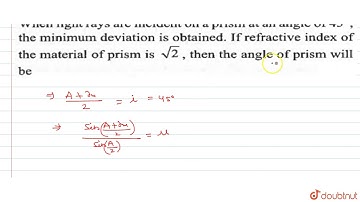 When light rays are incident on a prism at an angle of 45°,
the minimum deviation is obtained. If refractive index of
the material of prism is √2, then the angle of prism will
be
⇒ A + δm / 2 = i = 45°
⇒ sin(A + δm / 2) / sin(A / 2) = μ
doubtnut